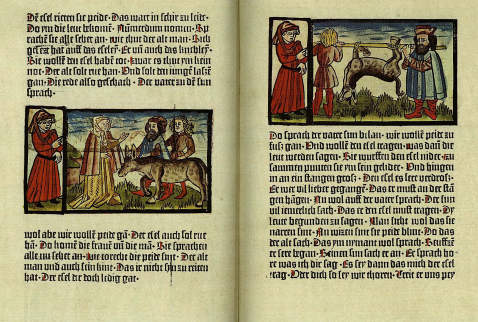 Den esel ritten sie peide · Das wart in schir zu leide ·
Do ym die leut bekomē ·
Sprachen sie alle seher an · wie thut der alt man · Sich
geseczt hat auff das eselen · Er vñ auch das
wir wollē den esel haben tot · zwar es thut ym hein
not · Der alt solt rue han · Und solt den iungē lassen
gan · Die rede also geschach · Der vater zu dē sun
sprach ·
wol abe wir wollē peide gā · Der esel auch sol rue
hā · Do komē die frauē vñ die mā · Sie sprachen
alle nu seher an · wie torecht die peide sint · Der alt
man und auch sein kint · Das ir nicht hin zu reiten
hat · Der esel dē doch ledig gat ·
Do sprach der vater sun bilan · wir wollē peide zu
fuß gan · Und wollē den esel tragen · was dan die
leut werden sagen · Sie wurffen den esel nider · zu
samnen punten sie ym sein gelider · Und hingen
in an ein stangen groß · Den esel es seer verdroß ·
Er wer vil lieber gegangē · Das er must an der stan
gen hāgen · Nu wol auff der vater sprach · Der sun
vil iemerlich sach · Das er den esel must tragen · Dy
leute begunden zu sagen · Man sicht wol das sie
naren sint · An wiczen sint sie peide blint · Do das
der alt sach · Das ym nymant wol sprach ·
er seer began · Seinen sun sach er an · Er sprach ho
re was ich dir sag · Es sey dann das mich der esel
trag · Oder dich so sey wir thoren ·